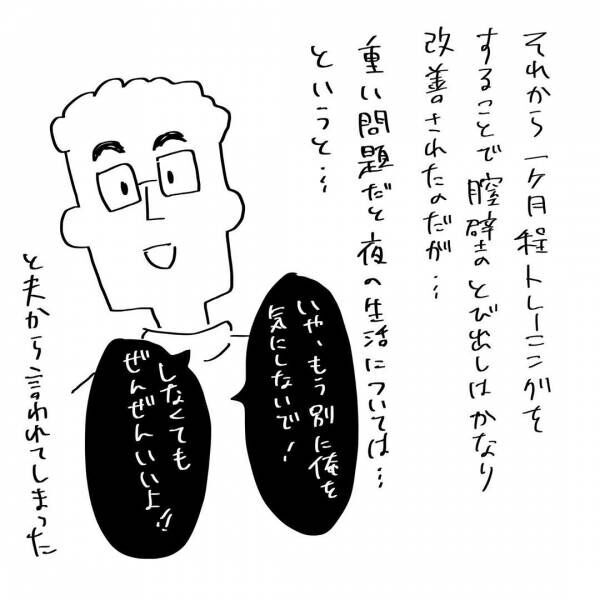 それから一ヶ月程トレーニングを
することで膣壁のとび出しはかなり
改善されたのだが…
重い問題だと夜の生活については…
というと…
いや、もう別に俺を
気にしないで!
しなくても
ぜんぜんいいよ!!
と夫から言われてしまった